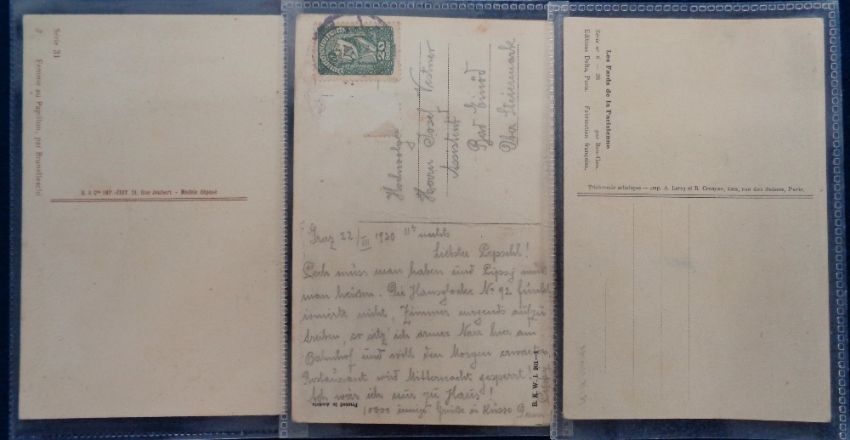 Série 31
2 Femme au Papillon, par Brunelleschi
R. & Cie IMP.-ÉDIT. 21, Rue Joubert - Modèle déposé
20
Hochwohlgeb
Herrn Josef
Gasthof
Bad Einöd
Ober Steiermark
Graz 22/III 1920 11h nachts
Liebster Pepschl!
Pech muss man haben und Pipsy muss
man heissen. Die Hausglocke No 92 funkti
onierte nicht, Zimmer nirgends aufzu
treiben, so sitz' ich armer Narr hier am
Bahnhof und will den Morgen erwarten
Restaurant wird Mitternacht gesperrt!
Ach wär ich nur zu Haus!
1000 innige Grüße u Küsse
Printed in Austria
B. K. W. I.
Les Fards de la Parisienne
par
Série nº
Editions Delta, Paris. Fabrication française.
Trichromie artistique - imp. A. Leroy et R. Crémieu, rue des Suisses, Paris.